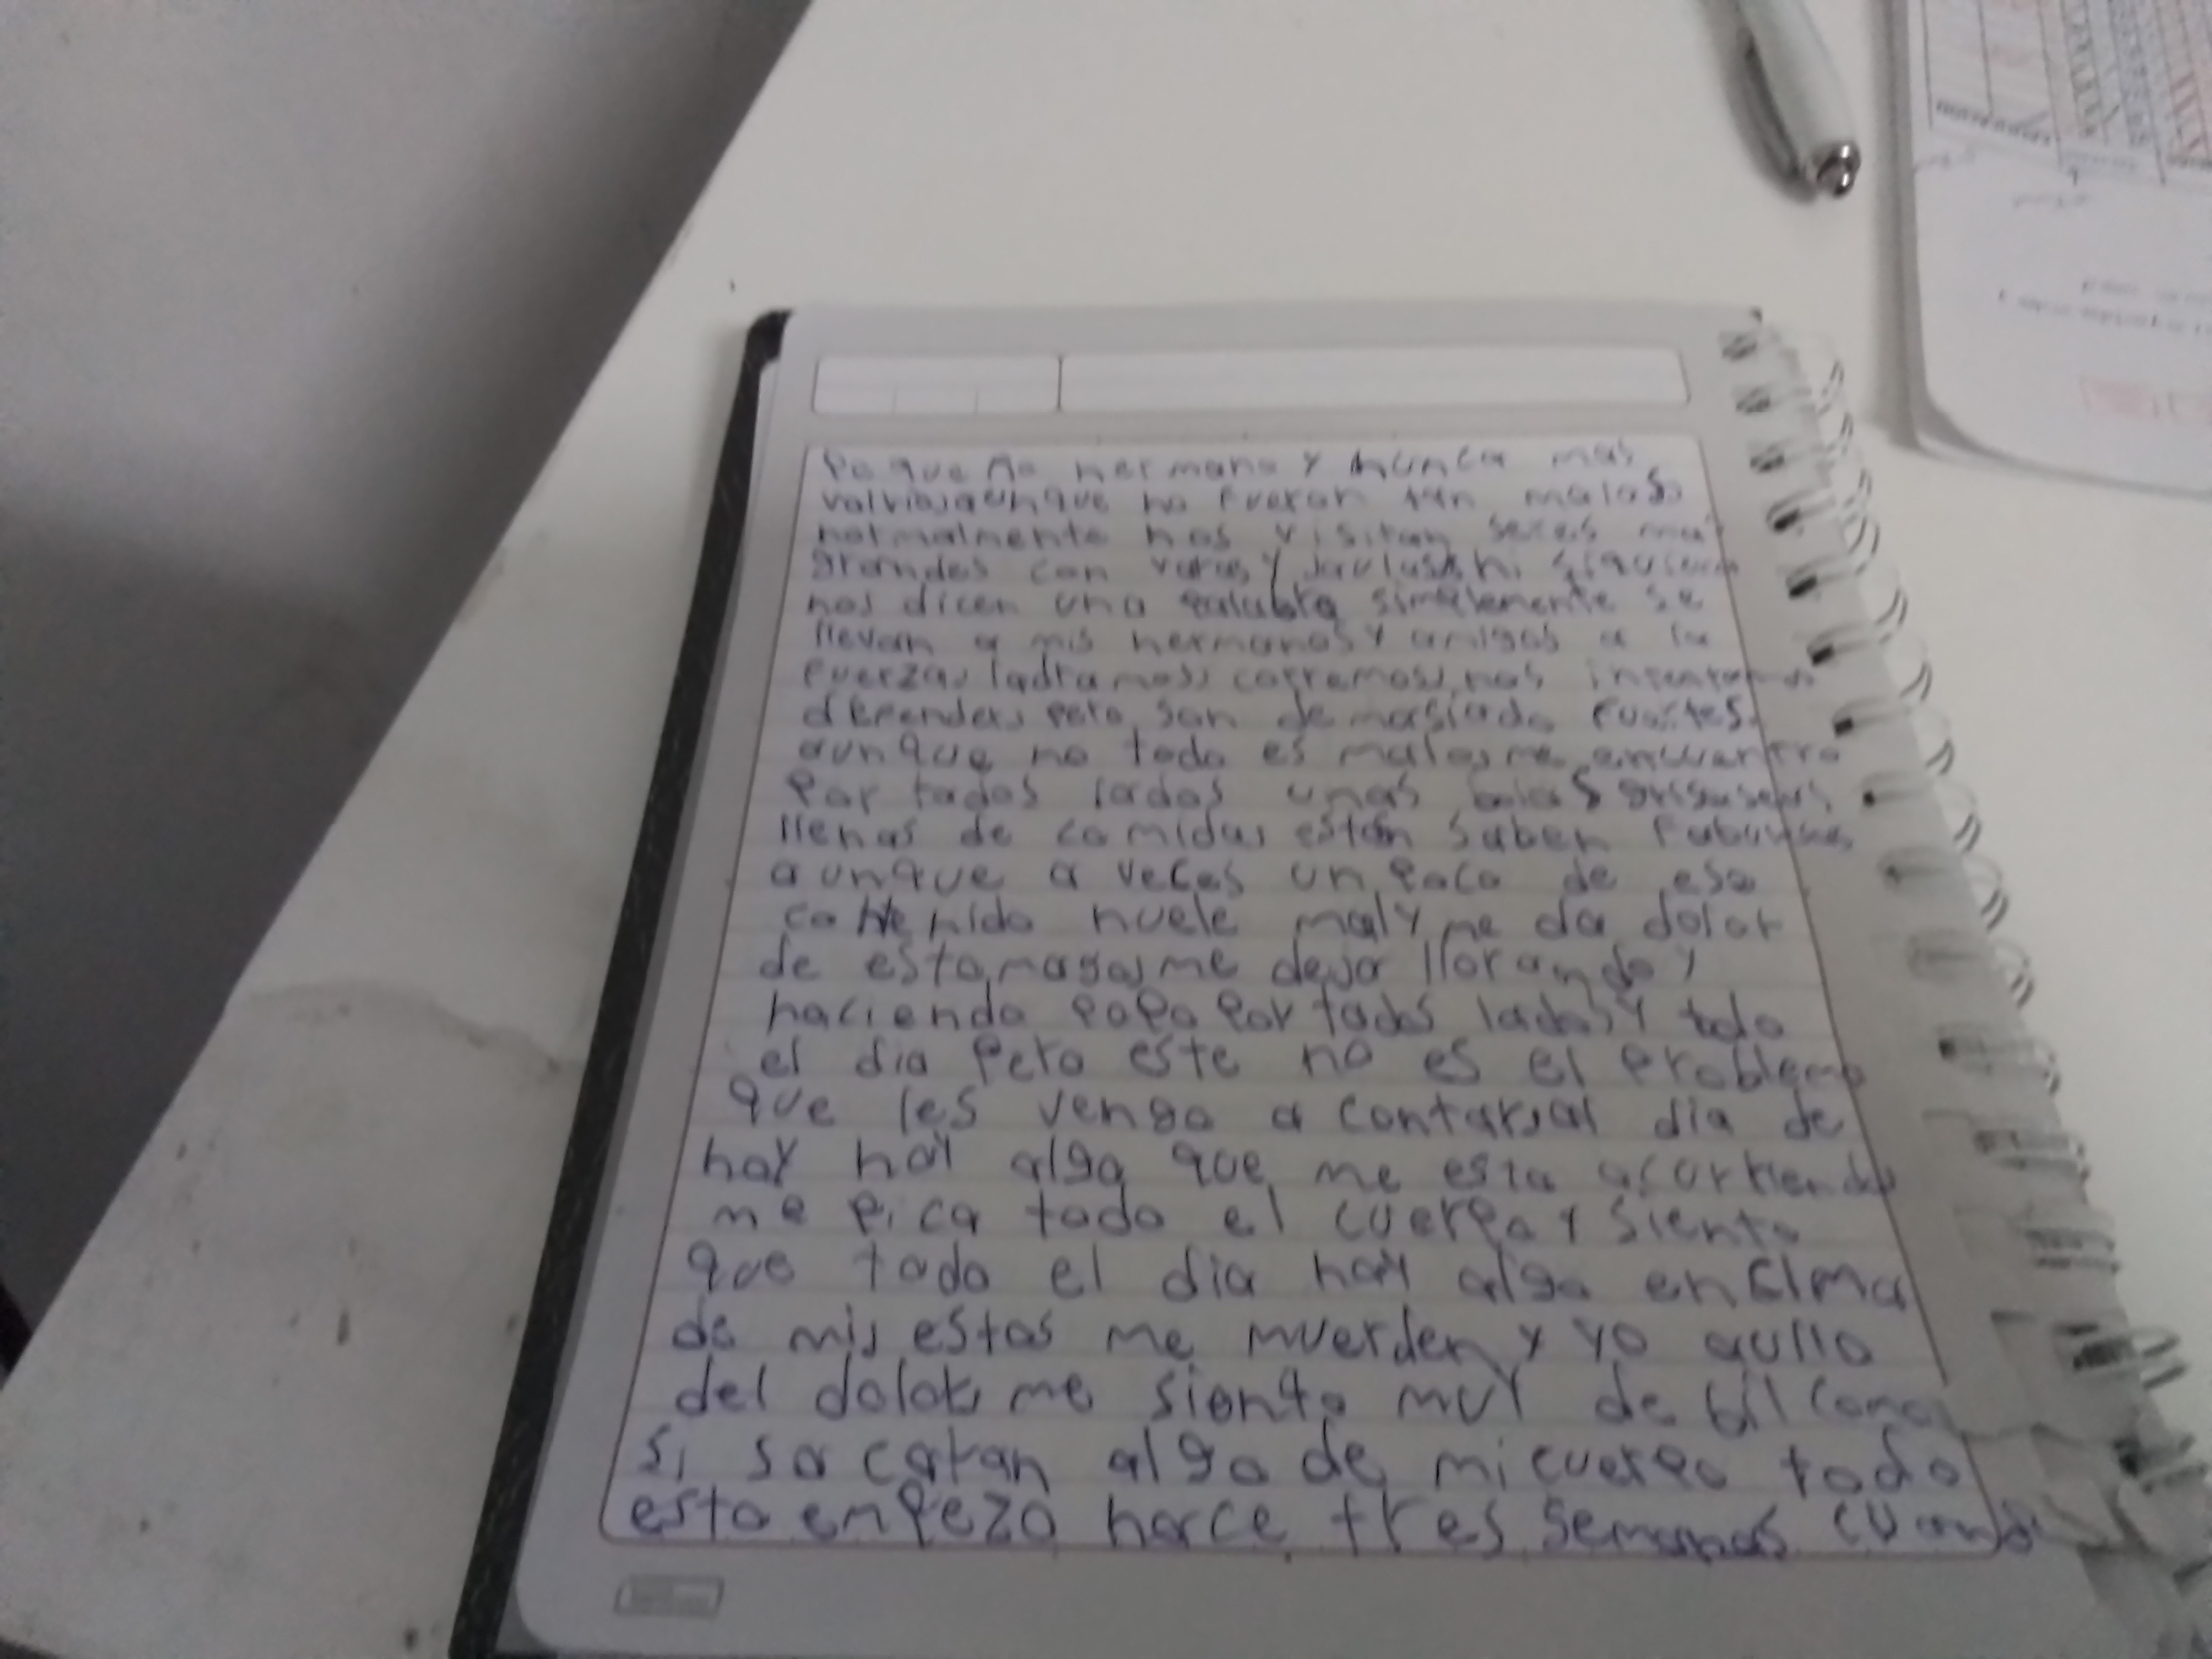 pequeño hermano y nunca mas
volvio, aunque no fueron tan malos,
normalmente nos visitan seres mas
grandes con varas y jaulas, ni siquiera
nos dicen una palabra simplemente se
llevan a mis hermanos y amigos a la
fuerza, ladramos, corremos, nos intentamos
defender, pero son demasiado fuertes.
aunque no todo es malo, me encuentro
por todos lados unas
llenas de comida, están saben
aunque a veces un poco de ese
contenido huele mal y me da dolor
de estomago, me deja llorando y
haciendo popo por todos lados y todo
el dia pero este no es el problema
que les vengo a contar, al dia de
hoy hay algo que me esta ocurriendo
me pica todo el cuerpo y siento
que todo el dia hay algo encima
de mi, estos me muerden y yo aullo
del dolor, me siento muy debil como
si sacaran algo de mi cuerpo todo
esto enpezo hace tres semanas cuando